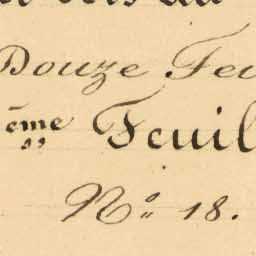 Douze Feu
ème Feuil
No. 18.